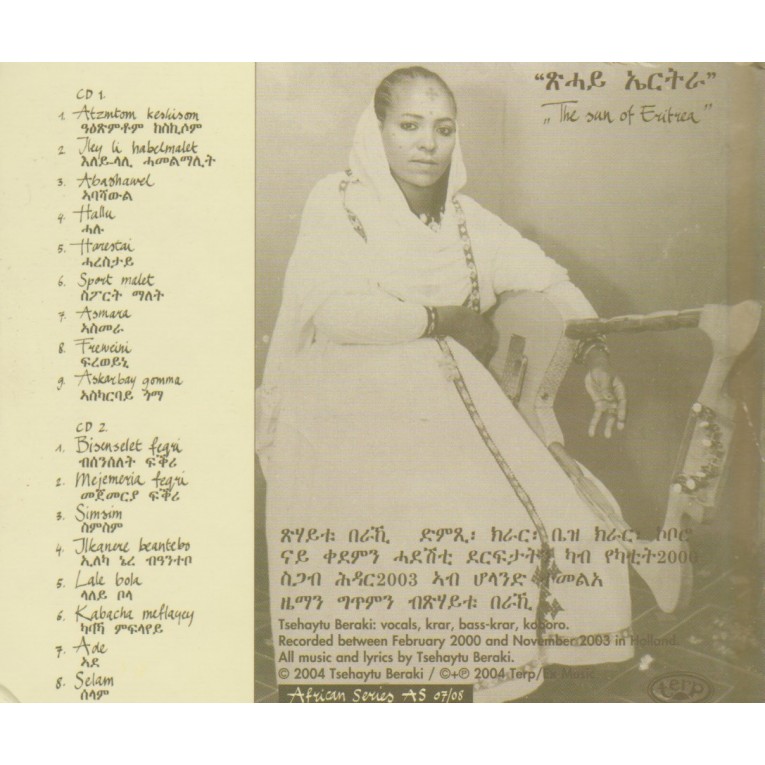 CD 1.
1. Atzmtom keskisom
ዓፅምቶም ከስኪሶም
2 Iley li habelmalet
እለይ-ላሊ ሓመልማሊት
3. Abashawel
ኣባሻውል
4. Hallu
ሓሉ
5. Harestai
ሓረስታይ
6. Sport malet
ስፖርት ማለት
7. Asmara
ኣስመራ
8. Freweini
ፍረወይኒ
9. Askarbay gomma
ኣስካርባይ ጎማ
CD 2.
1. Bisenselet feqri
ብሰንሰለት ፍቕሪ
2. Mejemeria feqri
መጀመርያ ፍቕሪ
3. Simsim
ስምስም
4. Ilkanere beantebo
ኢልካ ኔረ ብዓንተቦ
5. Lale bola
ላለይ ቦላ
6. Kabacha meflayey
ካባኻ ምፍላየይ
7. Ade
ኣደ
8. Selam
ሰላም
“ጽሓይ ኤርትራ”
„The sun of Eritrea”
ጽሃይቱ በራኺ ድምጺ፡ ክራር፡ ቤዝ ክራር፡ ኮቦሮ
ናይ ቀደምን ሓደሽቲ ደርፍታትን ካብ የካቲት2000
ስጋብ ሕዳር2003 ኣብ ሆላንድ ተመልአ
ዜማን ግጥምን ብጽሃይቱ በራኺ
Tsehaytu Beraki: vocals, krar, bass-krar, koboro.
Recorded between February 2000 and November 2003 in Holland.
All music and lyrics by Tsehaytu Beraki.
© 2004 Tsehaytu Beraki / ©+℗ 2004 Terp/Ex Music
African Series AS 07/08
terp